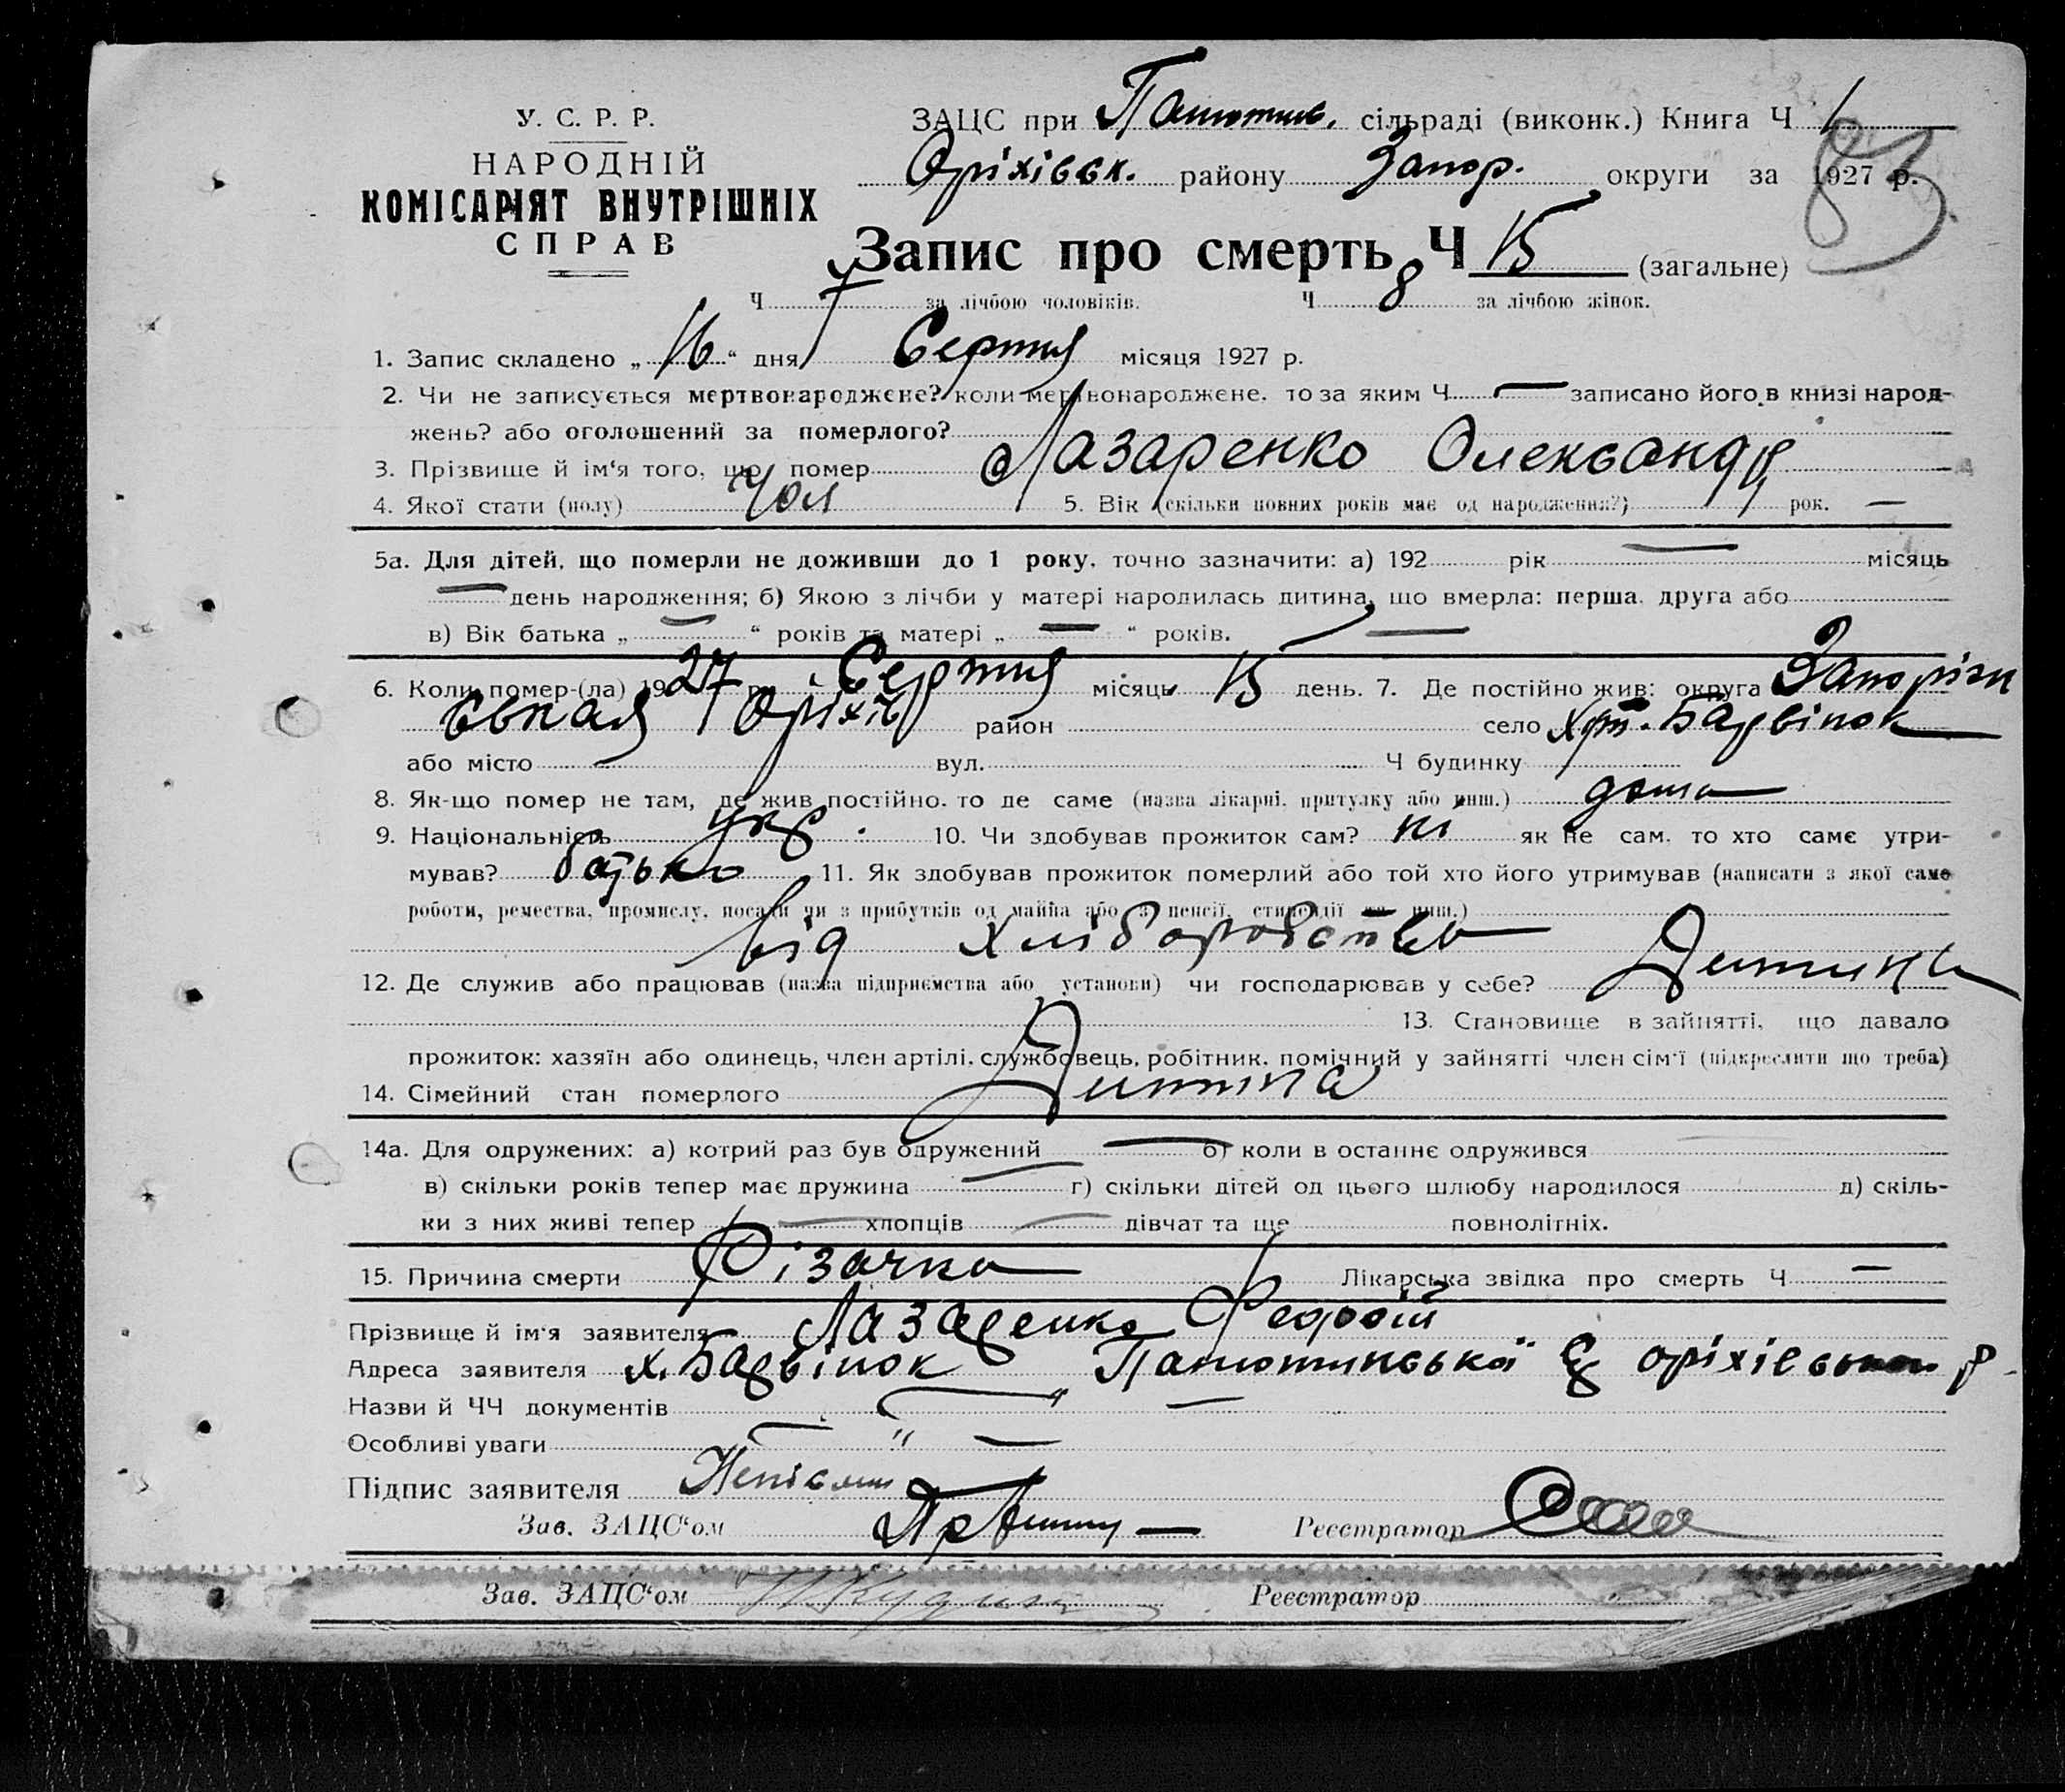 У. С. Р. Р.
НАРОДНІЙ
КОМІСАРІЯТ ВНУТРІШНІХ
СПРАВ
ЗАЦС при Панютин. сільраді (виконк.) Книга Ч 1
Оріхівск. району Запор. округи за 1927 р.
83
Запис про смерть Ч 15 (загальне)
Ч 7 за лічбою чоловіків. Ч 8 за лічбою жінок.
1. Запис складено „16“ дня Серпня місяця 1927 р.
2. Чи не записується мертвонароджене? коли мертвонароджене, то за яким Ч — записано його в книзі народ-
жень? або оголошений за померлого?
3. Прізвище й ім‘я того, що помер Лазаренко Олександр
4. Якої стати (полу) Чол 5. Вік (скільки повних років має од народження?) 1 рок. —
5а. Для дітей, що померли не доживши до 1 року, точно зазначити: а) 192 рік — місяць
— день народження; б) Якою з лічби у матері народилась дитина, що вмерла: перша, друга або
в) Вік батька „ — “ років та матері „ — “ років. —
6. Коли помер-(ла) 1927 р. Серпня місяць 15 день. 7. Де постійно жив: округа Запоріж
євкая Оріхів район село Хут. Барвінок
або місто вул. Ч будинку
8. Як-що помер не там, де жив постійно, то де саме (назва лікарні, притулку або инш.) дома
9. Національність укр. 10. Чи здобував прожиток сам? ні як не сам, то хто саме утри-
мував? батько 11. Як здобував прожиток померлий або той хто його утримував (написати з якої саме
роботи, ремества, промислу, посади чи з прибутків од майна або з пенсії, стипендії та инш.)
від хліборобства
12. Де служив або працював (назва підприємства або установи) чи господарював у себе? Дитина
13. Становище в зайнятті, що давало
прожиток: хазяїн або одинець, член артілі, службовець, робітник, помічний у зайнятті член сім‘ї (підкреслити що треба)
14. Сімейний стан померлого Дитина
14а. Для одружених: а) котрий раз був одружений — б) коли в останнє одружився
в) скільки років тепер має дружина — г) скільки дітей од цього шлюбу народилося д) скіль-
ки з них живі тепер — хлопців — дівчат та ще повнолітніх.
15. Причина смерти Різачка Лікарська звідка про смерть Ч —
Прізвище й ім‘я заявителя Лазаренко
Адреса заявителя х. Барвінок Панютинської оріхівськ р
Назви й ЧЧ документів — „ —
Особливі уваги — „ —
Підпис заявителя
Зав. ЗАЦС‘ом Реєстратор
Зав. ЗАЦС‘ом Реєстратор